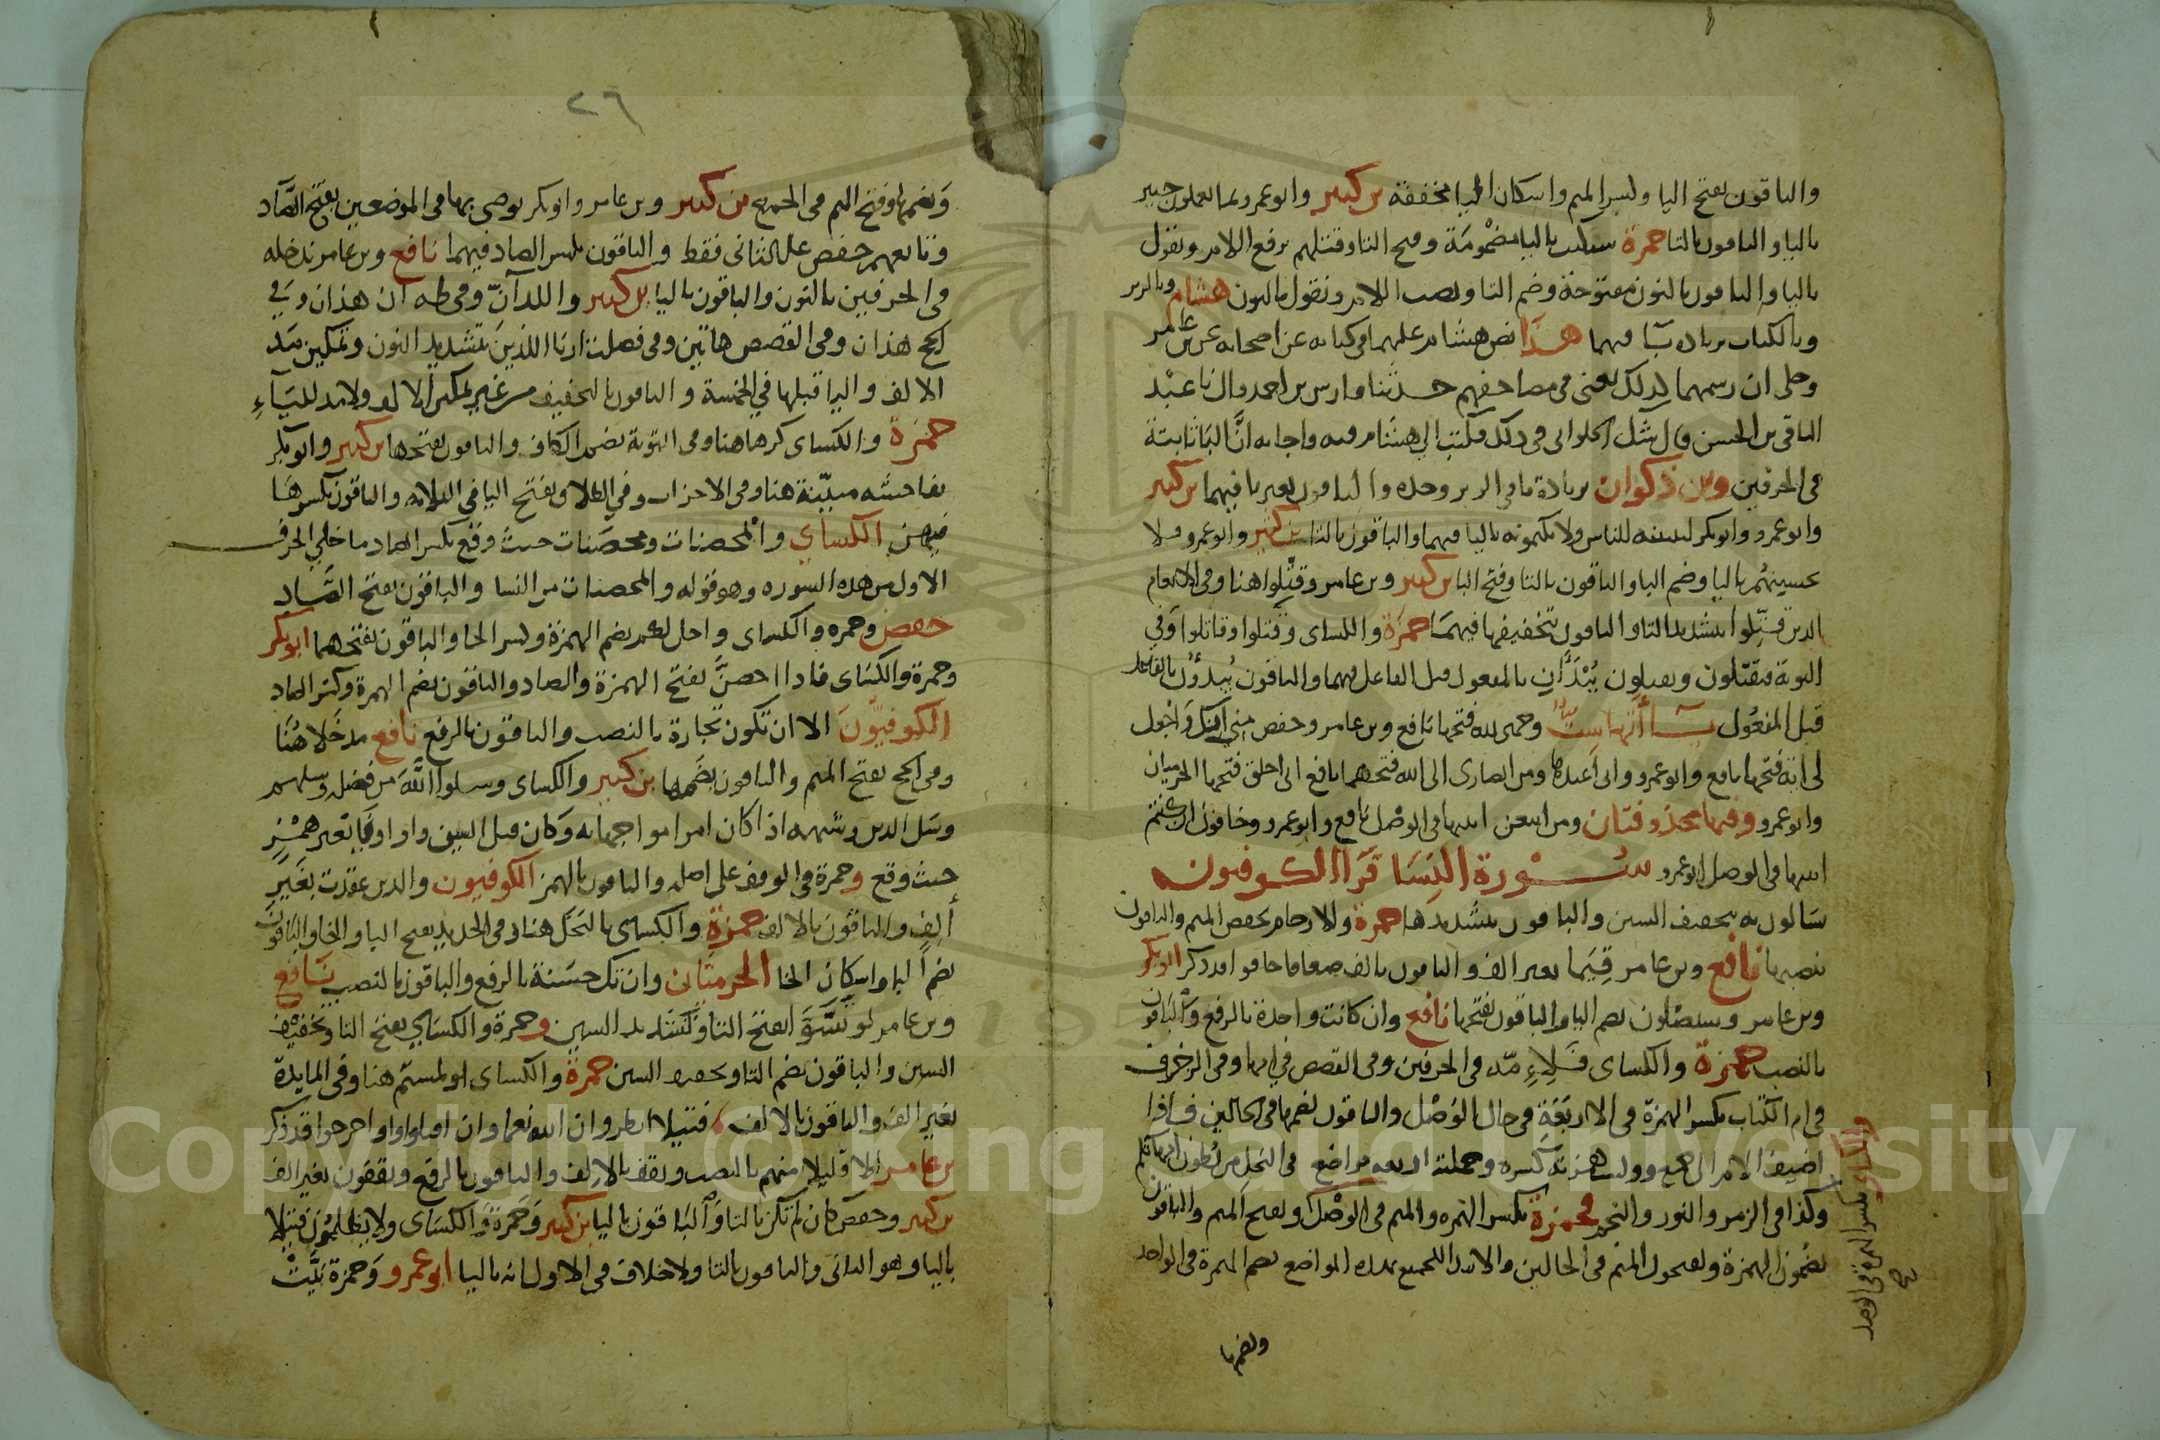 والباقون بفتح اليا وكسر الميم واسكان اليا مخففة بن كثير وابو عمرو بما يعملون خبير
باليا والباقون بالتا حمزة سيكتب باليا مضمومة وفتح التا وقتلهم برفع اللام ويقول
باليا والباقون بالنون مفتوحة وضم التا ونصب اللام ونقول بالنون هشام وبالزبر
وبالكتاب بزيادة با فيهما هذا نص هشام عليهما في كتابه عن اصحابه عن بن عامر
وحكى ان رسمهما كذلك يعني في مصاحفهم حدثنا فارس بن احمد قال نا عبد
الباقي بن الحسن قال شك الحلواني في ذلك فكتب الى هشام فيه واجابه ان البا ثابتة
في الحرفين وبن ذكوان بزيادة با في الزبر وحده والباقون بغير با فيهما بن كثير
وابو عمرو وابو بكر ليبيننه للناس ولا يكتمونه باليا فيهما والباقون بالتا بن كثير وابو عمرو فلا
يحسبنهم باليا وضم البا والباقون بالتا وفتح البا بن كثير وبن عامر وقتلوا هنا وفي الانعام
الذين قتلوا بتشديد التا والباقون بتخفيفها فيهما حمزة والكساي وقتلوا وقاتلوا وفي
التوبة فيقتلون ويقتلون يبدان بالمفعول قبل الفاعل فيهما والباقون يبدؤن بالفاعل
قبل المفعول ياأتها ست وجهي لله فتحها نافع وبن عامر وحفص مني انك واجعل
لي اية فتحها نافع وابو عمرو واني اعيذها ومن انصاري الى الله فتحهما نافع اني اخلق فتحها الحرميان
وابو عمرو وفيها محذوفتان ومن اتبعن اثبتها في الوصل نافع وابو عمرو وخافون ان كنتم
اثبتها في الوصل ابو عمرو سورة النسا قرا الكوفيون
تسالون به بتخفيف السين والباقون بتشديدها حمزة والارحام بخفض الميم والباقون
بنصبها نافع وبن عامر قيما بغير الف والباقون بالف ضعافا خافوا قد ذكر ابو بكر
وبن عامر وسيصلون بضم اليا والباقون بفتحها نافع وان كانت واحدة بالرفع والباقون
بالنصب حمزة والكساي فلامه في الحرفين وفي القصص في امها وفي الزخرف
في ام الكتاب بكسر الهمزة في الاربعة في حال الوصل والباقون بضمها في الحالين فاذا
اضيف الام الى جمع ووليت همزته كسرة وجملته اربعة مواضع في النحل من بطون امهاتكم
وكذا في الزمر والنور والنجم فحمزة بكسر الهمزة والميم في الوصل وبفتح الميم والباقون
يضمون الهمزة ويفتحون الميم في الحالين والابتدا للجميع بهذه المواضع بضم الهمزة في الواحد
والكساي بكسر الهمزة في الوصل
صح
وبضمها
٢٦
وبضمها وفتح الميم في الجميع بن كثير وبن عامر وابو بكر يوصى بها في الموضعين بفتح الصاد
وتابعهم حفص على الثاني فقط والباقون بكسر الصاد فيهما نافع وبن عامر ندخله
في الحرفين بالنون والباقون باليا بن كثير واللذان وفي طه ان هذان وفي
الحج هذان وفي القصص هاتين وفي فصلت ارنا اللذين بتشديد النون وتمكين مد
الالف واليا قبلها في الخمسة والباقون بالتخفيف من غير تمكين الالف ولا مد لليآء
حمزة والكساي كرها هنا وفي التوبة بضم الكاف والباقون بفتحها بن كثير وابو بكر
بفاحشة مبينة هنا وفي الاحزاب وفي الطلاق بفتح اليا في الثلاثة والباقون بكسرها
فيهن الكساي والمحصنات ومحصنات حيث وقع بكسر الصاد ما خلى الحرف
الاول من هذه السورة وهو قوله والمحصنات من النسا والباقون بفتح الصاد
حفص وحمزة والكساي واحل لكم بضم الهمزة وكسر الحا والباقون بفتحهما ابو بكر
وحمزة والكساي فاذا احصن بفتح الهمزة والصاد والباقون بضم الهمزة وكسر الصاد
الكوفيون الا ان تكون تجارة بالنصب والباقون بالرفع نافع مدخلا هنا
وفي الحج بفتح الميم والباقون بضمها بن كثير والكساي وسلوا الله من فضله وسلهم
وسل الذين وشبهه اذا كان امرا مواجها به وكان قبل السين واو او فا بغير همز
حيث وقع وحمزة في الوقف على اصله والباقون بالهمز الكوفيون والذين عقدت بغير
ألف والباقون بالالف حمزة والكساي بالبخل هنا وفي الحديد بفتح البا والخا والباقون
بضم البا واسكان الخا الحرميان وان تك حسنة بالرفع والباقون بالنصب نافع
وبن عامر لو تسوى بفتح التا وتشديد السين وحمزة والكساي بفتح التا وتخفيف
السين والباقون بضم التا وتخفيف السين حمزة والكساي او لمستم هنا وفي المايدة
بغير الف والباقون بالالف فتيلا انظر وان الله نعما وان اقتلوا او اخرجوا قد ذكر
بن عامر الا قليلا منهم بالنصب ويقف بالالف والباقون بالرفع ويقفون بغير الف
بن كثير وحفص كان لم تكن بالتا والباقون باليا بن كثير وحمزة والكساي ولا يظلمون فتيلا
باليا وهو الثاني والباقون بالتا ولا خلاف في الاول انه باليا ابو عمرو وحمزة بيت
Copyright © King Saud University